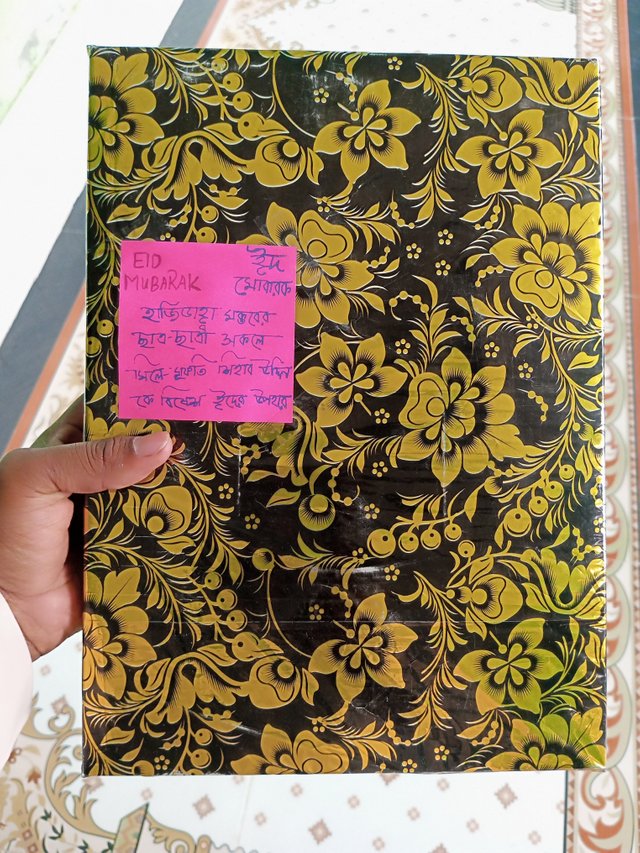 EID
MUBARAK
ঈদ
মোবারক
মক্তবের
ছাত্র-ছাত্রী সকলে
মিলে মুফতি শিহাব উদ্দিন
কে বিশেষ ঈদের উপহার